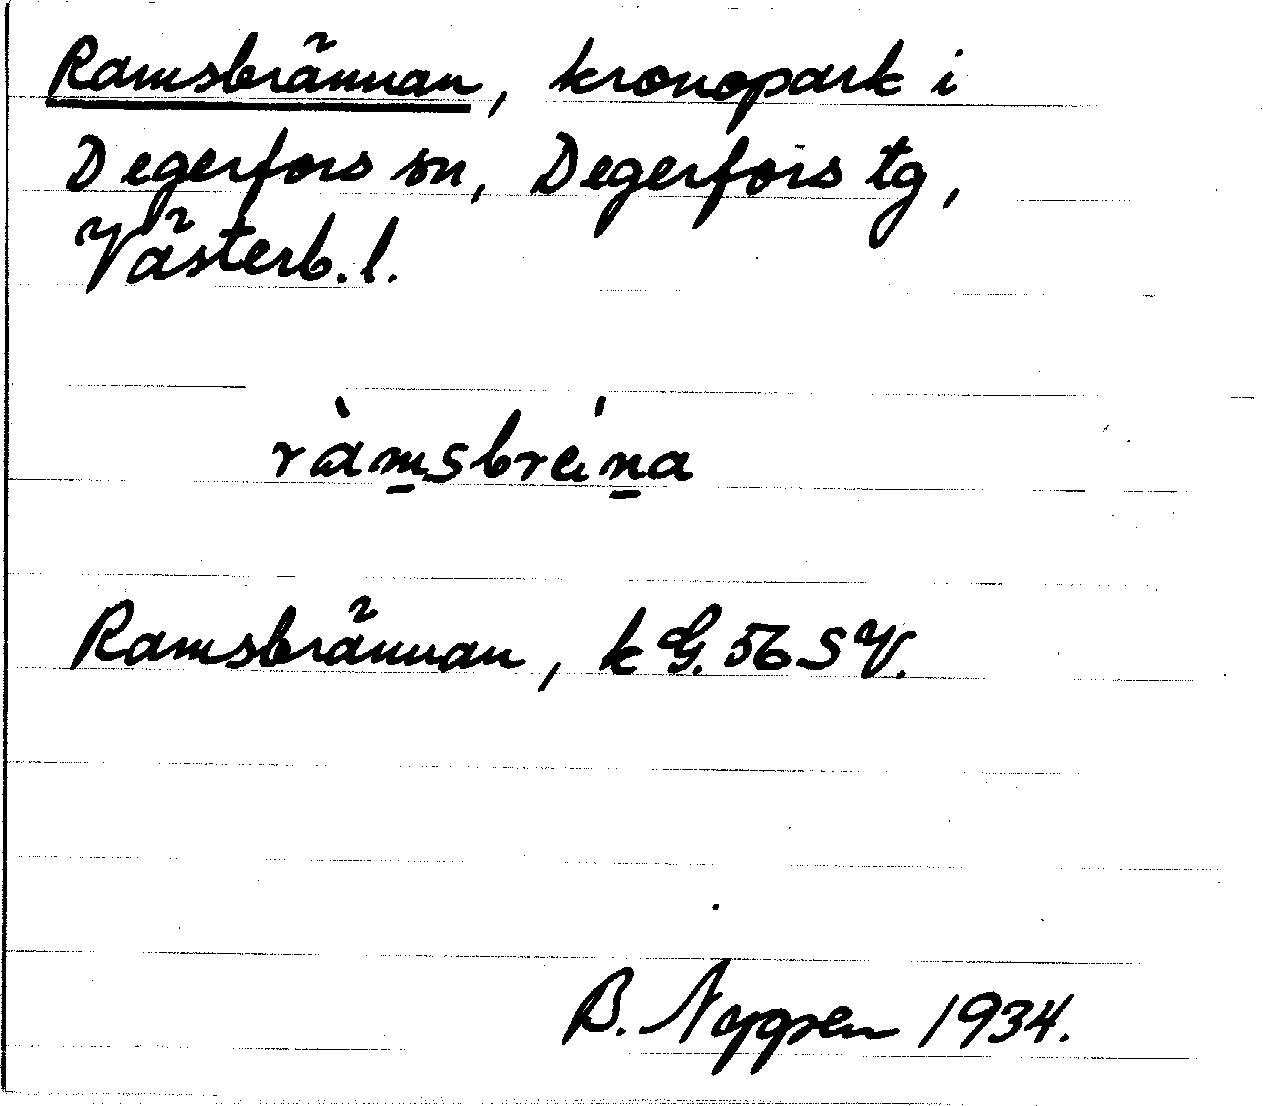 Ramsbrännan, kronopark i
Degerfors sn, Degerfors tg,
Västerb. l.
ràm̱sbréṉa
Ramsbrännan, k G. 56 SV.
B. Nygren 1934.